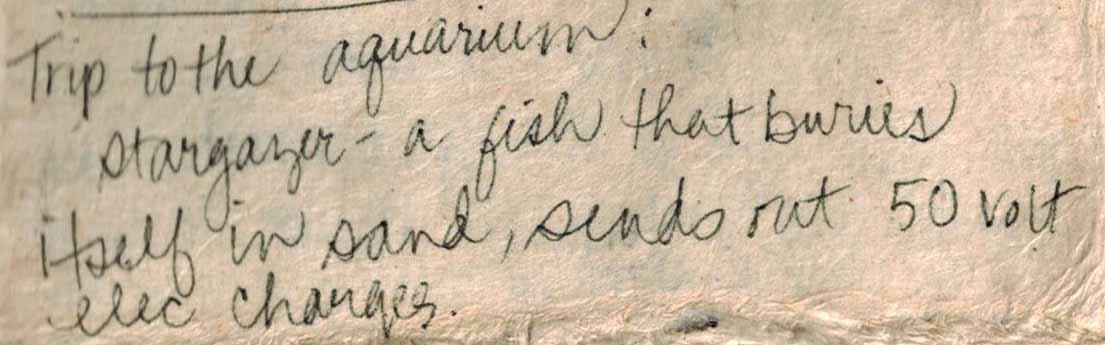 Trip to the aquarium:
stargazer - a fish that buries
itself in sand, sends out 50 volt
elec charges.